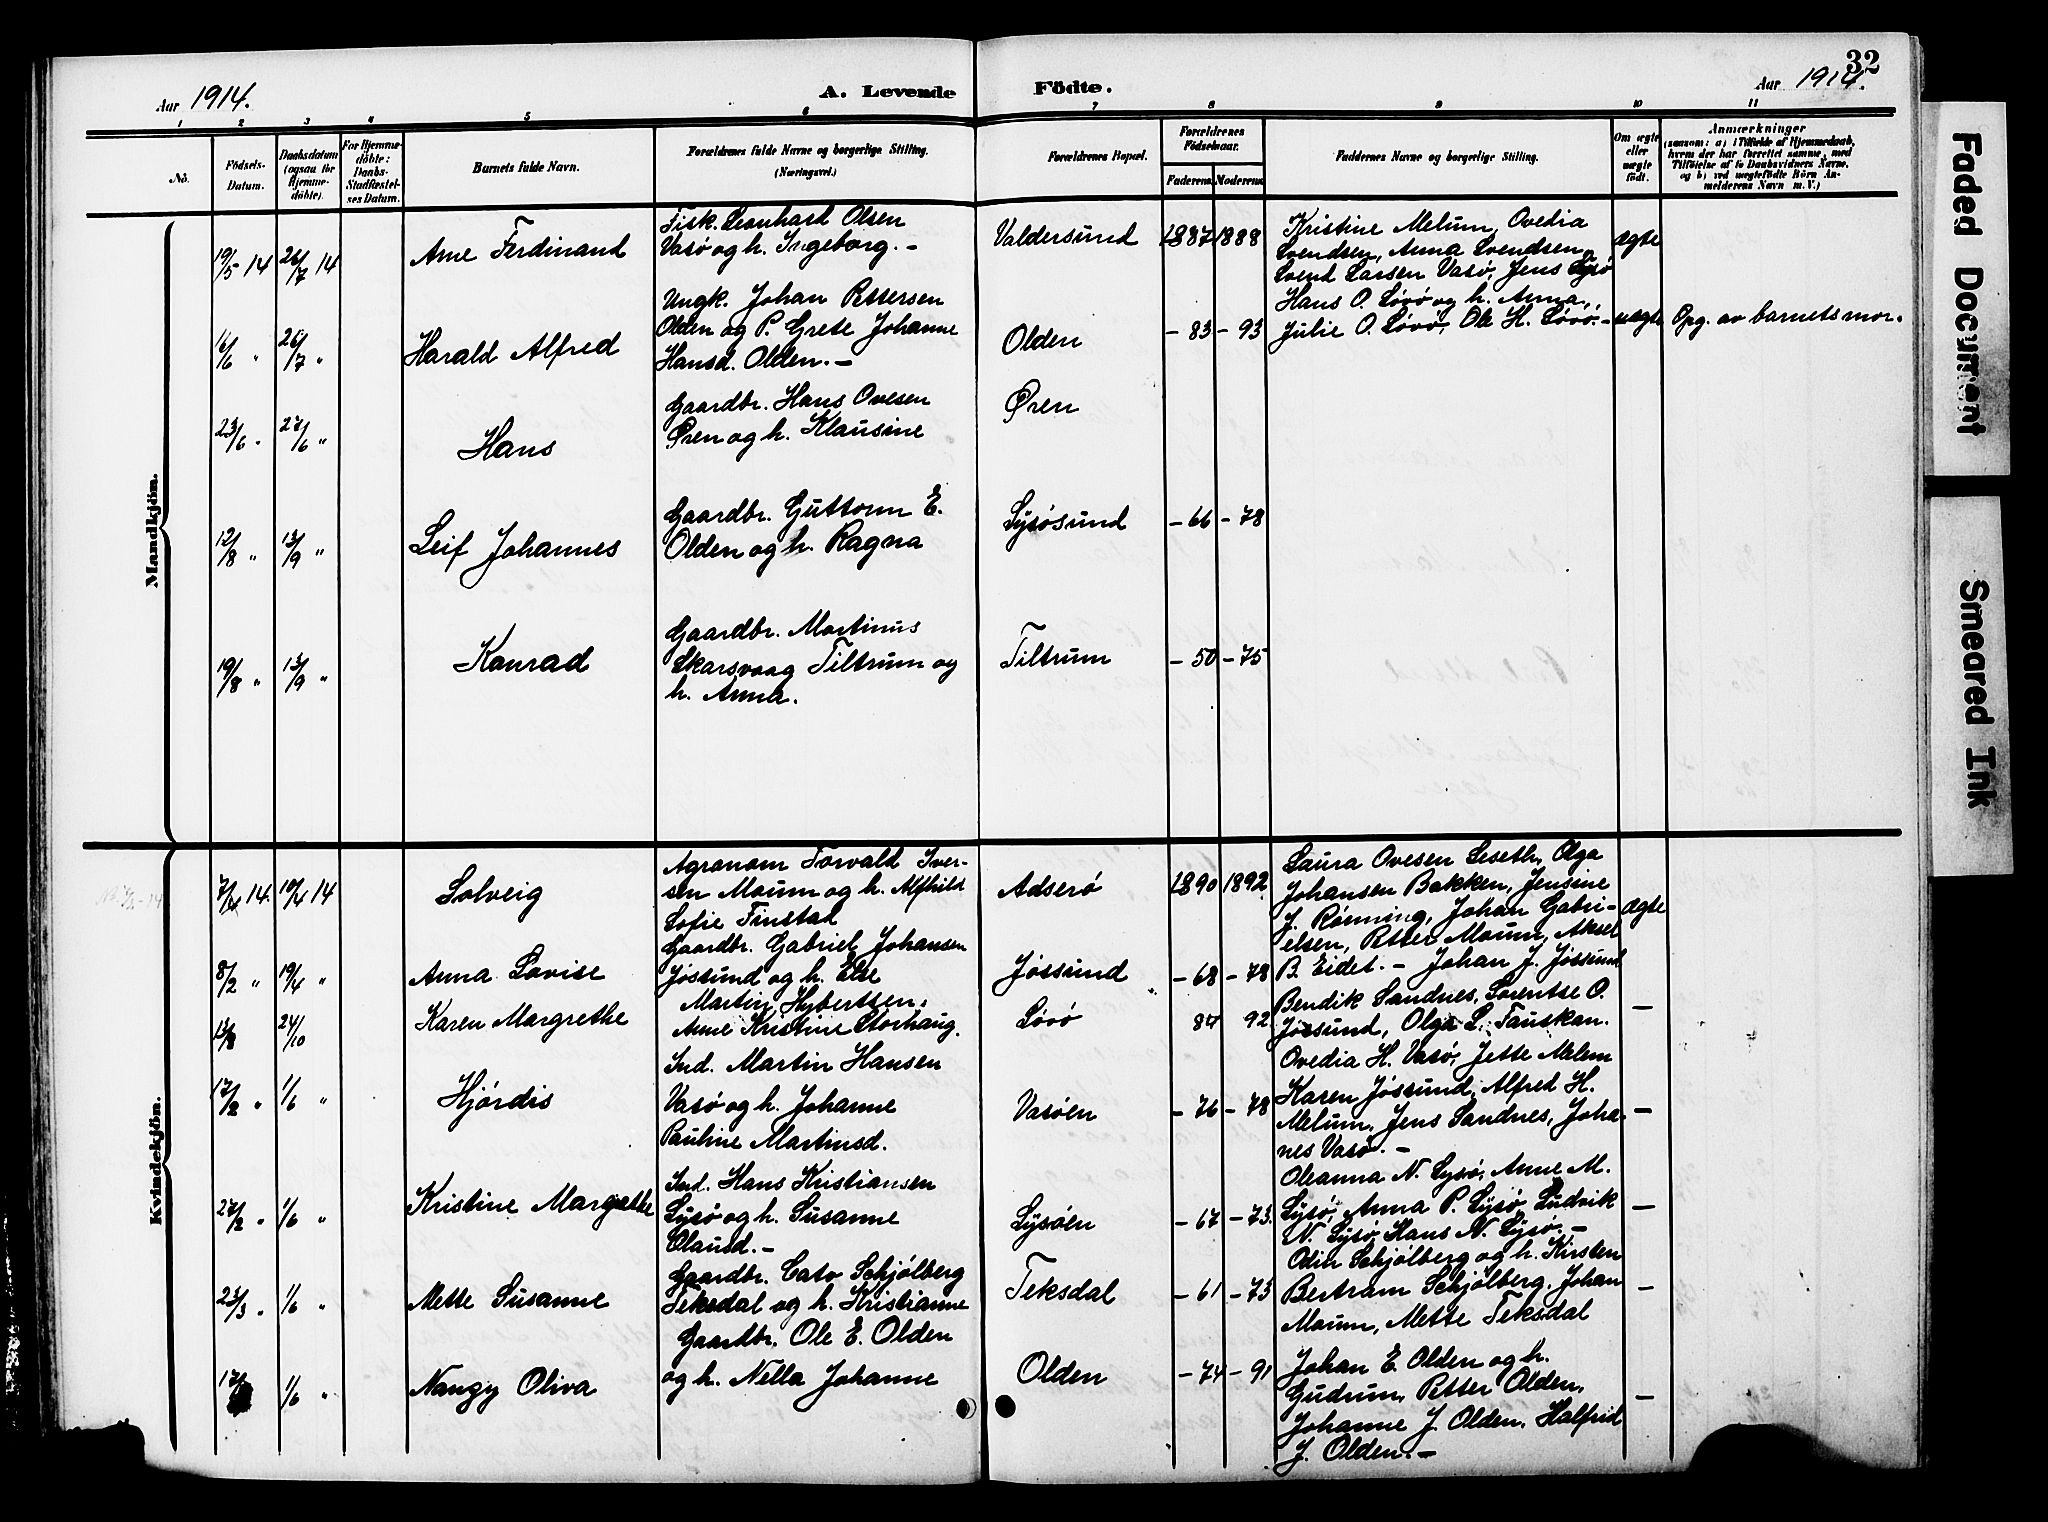 32
Aar 1914.
A. Levende Födte.
Aar 1914.
1 2 3 4 5 6 7 8 9 10 11
No.
Födsels-Datum.
Daabsdatum (ogsaa for Hjemmedöbte).
For Hjemmedöbte: Daabs-Stadfæstelses Datum.
Barnets fulde Navn.
Forældrenes fulde Navne og borgerlige Stilling. (Næringsvei.)
Forældrenes Bopæl.
Forældrenes Födselsaar.
Faderens Moderens
Faddernes Navne og borgerlige Stilling.
Om ægte eller uægte födt.
Anmærkninger
(saasom: a) i Tilfælde af Hjemmedaab,
hvem der har forrettet samme, med
Tilföielse af to Daabsvidners Navne,
og b) ved uægtefödte Börn An-
melderens Navn m. V.)
Mandkjön.
19/5 14 26/7 14 Arne Ferdinand
Fisk. Leonhard Olsen
Vasø og h. Ingeborg. –
Valdersund 1887 1888
Kristine Melum, Ovedia
Svendsen, Anna Svendsen,
Svend Larsen Vasø, Jens Lysø
ægte
16/6 " 26/7 " Harald Alfred
Ungk. Johan Pettersen
Olden og P. Grete Johanne
Hansd. Olden. –
Olden – 83 – 93
Hans O. Løvø og h. Anna,
Julie O. Løvø, Ole H. Løvø. –
uægte Opg. av barnets mor.
23/6 " 27/6 " Hans
Gaardbr. Hans Ovesen
Øren og h. Klausine
Øren
12/8 " 13/9 " Leif Johannes
Gaardbr. Guttorm E.
Olden og h. Ragna
Lysøsund – 66 – 78
19/8 " 13/9 " Konrad
Gaardbr. Martinus
Skarsvaag Tiltrum og
h. Anna.
Tiltrum – 50 – 75
Kvindekjön.
7/4 14. 19/4 14 Solveig
Agronom Torvald Iver-
sen Moum og h. Alfhild
Sofie Finstad
Adserø 1890 1892
Laura Ovesen Leseth, Olga
Johansen Bakken, Jensine
J. Rønning, Johan Gabri-
elsen, Petter Moum, Aksel
B. Eidet. –
ægte
8/2 " 19/4 " Anna Lovise
Gaardbr. Gabriel Johansen
Jøssund og h. Else
Jøssund – 68 – 78
Johan J. Jøssund
Bendik Sandnes, Lorentse O.
Jøssund, Olga L. Fauskan.
–
13/8 24/10 Karen Margrethe
Martin Hybertsen,
Anne Kristine Storhaug.
Løvø 84 92
17/2 " 1/6 " Hjørdis
Ind. Martin Hansen
Vasø og h. Johanne
Pauline Martinsd.
Vasøen – 76 – 78
Ovedia H. Vasø, Jette Melem
Karen Jøssund, Alfred H.
Melum, Jens Sandnes, Joha-
nes Vasø. –
–
27/2 " 1/6 " Kristine Margrethe
Ind. Hans Kristiansen
Lysø og h. Susanne
Olausd. –
Lysøen – 67 – 73.
Oleanna N. Lysø, Anne M.
Lysø, Anna P. Lysø, Ludvik
N. Lysø, Hans N. Lysø. –
–
23/3 " 1/6 " Mette Susanne
Gaardbr. Cato Schjølberg
Teksdal og h. Kristianne
Teksdal – 61 – 73
Odin Schjølberg og h. Kirsten
Bertram Schjølberg, Johan
Moum, Mette Teksdal
–
17/ 1/6 " Nangy Oliva
Gaardbr. Ole E. Olden
og h. Nella Johanne
Olden – 74 – 91
Johan E. Olden og h.
Gudrun, Petter Olden,
Johanne J. Olden, Halfrid
J. Olden. –
–
Faded Document
Smeared Ink